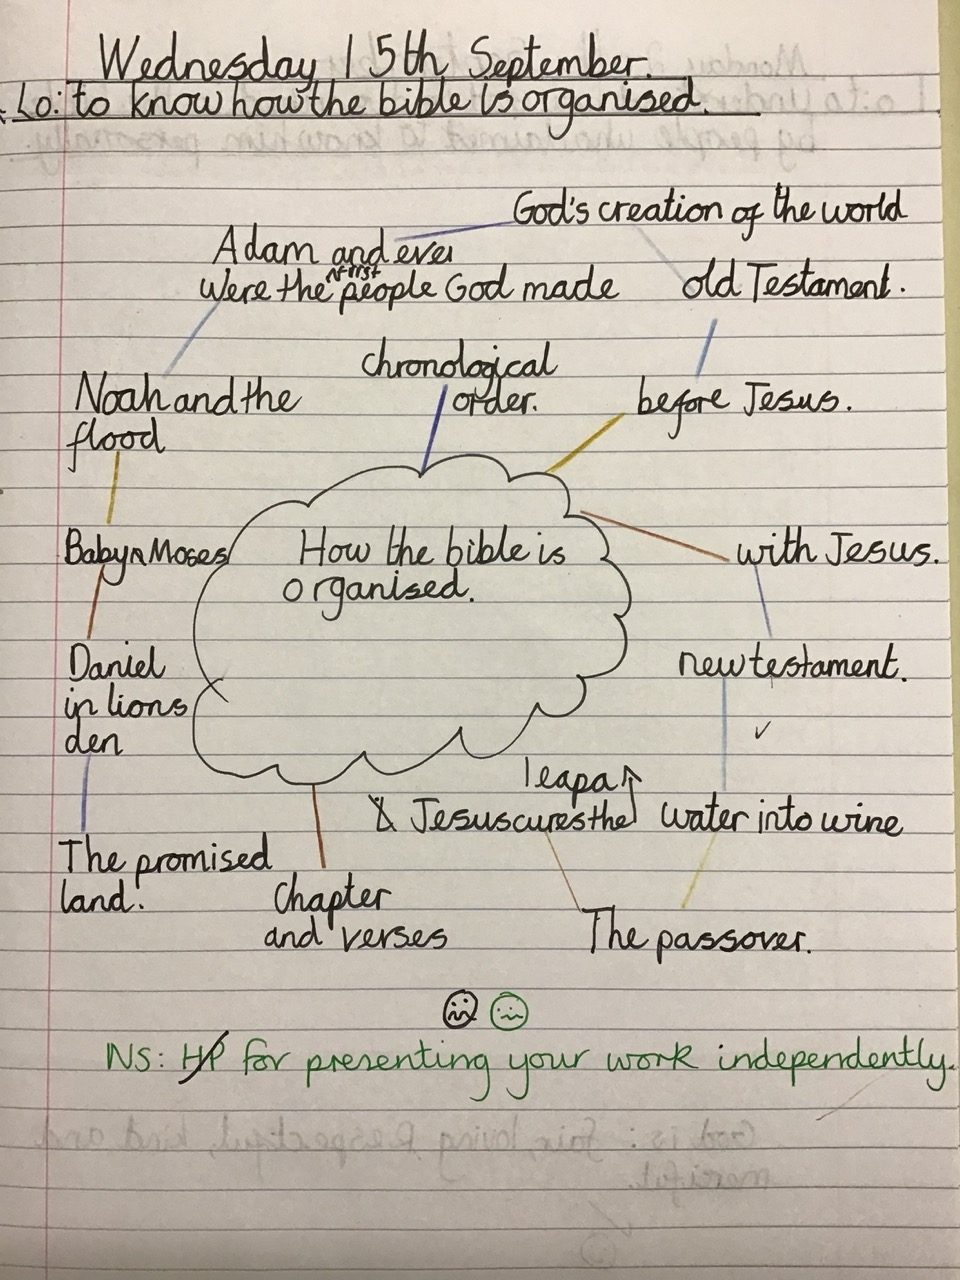 Wednesday 15th September.
Lo: to know how the bible is organised.
God's creation of the world
Adam and eve
were the first people God made
old Testament.
chronological
order.
before Jesus.
Noah and the
flood
Baby Moses
How the bible is
organised.
with Jesus.
Daniel
in lions
den
new testament.
leapa
& Jesus cures the
water into wine
The promised
land.
Chapter
and verses
The passover.
NS: HP for presenting your work independently.